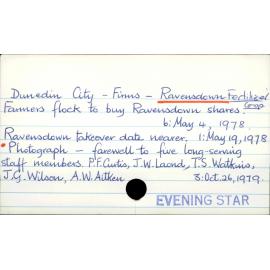 Dunedin City - Firms - Ravensdown Fertilizer
Co-op
Farmers flock to buy Ravensdown shares.
6: May 4, 1978
Ravensdown takeover date nearer. 1: May 19, 1978
• Photograph - farewell to five long-serving
staff members. P.F. Curtis, J.W. Laond, T.S. Watkins,
J.G. Wilson, A.W. Aitken 3: Oct. 26, 1979.
EVENING STAR